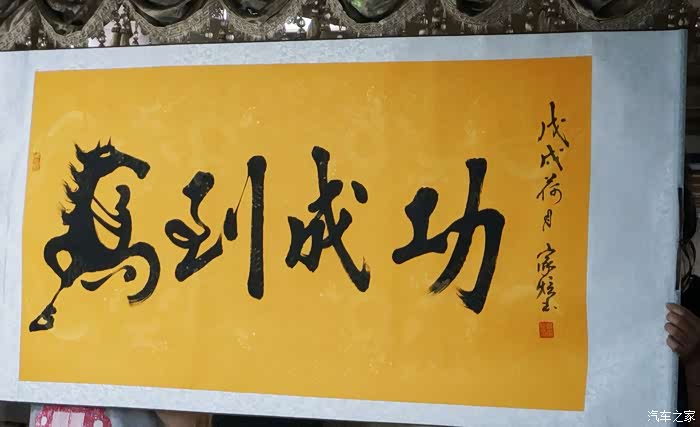 馬到成功
戊戌荷月
汽车之家